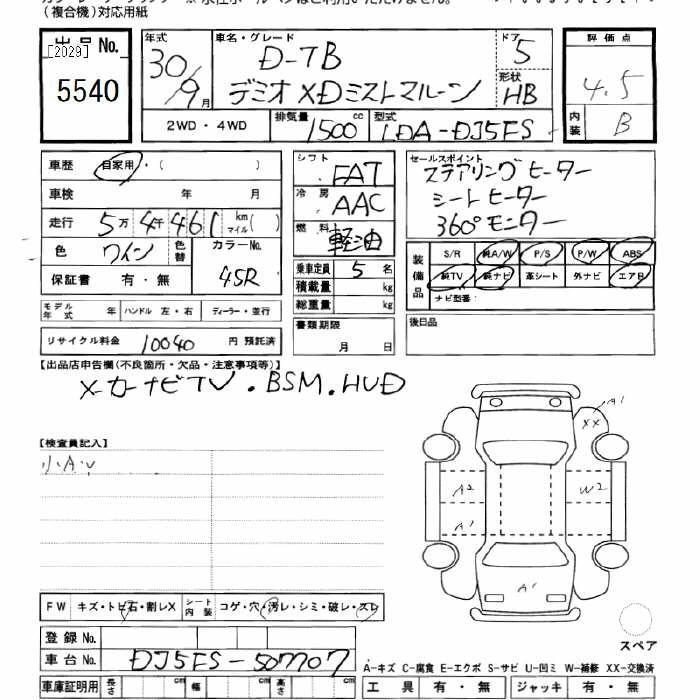 (複合機)対応用紙
出品No.
[2029]
5540
年式
30/9月
車名・グレード
D-TB
デミオ XDミストマルーン
ドア
5
形状
HB
評価点
4.5
内装
B
2WD・4WD
排気量
1500cc
型式
LDA-DJ5FS
車歴 自家用・( )
車検 年 月
走行 5万4千461 km マイル( )
色 ワイン
色替
カラーNo.
45R
保証書 有・無
モデル年式 年
ハンドル 左・右
ディーラー・並行
リサイクル料金 10040 円 預託済
シフト FAT
冷房 AAC
燃料 軽油
乗車定員 5 名
積載量 kg
総重量 kg
書類期限
月 日
セールスポイント
ステアリングヒーター
シートヒーター
360°モニター
装備品
S/R 純A/W P/S P/W ABS
純TV 純ナビ 革シート 外ナビ エアB
ナビ型番:
後日品
【出品店申告欄(不良箇所・欠品・注意事項等)】
メーカーナビTV.BSM.HUD
【検査員記入】
小A.
A1
XX
A2
W2
A1
A1
FW キズ・トビ石・割レX
シート内装 コゲ・穴・汚レ・シミ・破レ・スレ
登録No.
車台No. DJ5FS-507707
スペア
A-キズ C-腐食 E-エクボ S-サビ U-凹ミ W-補修 XX-交換済
車庫証明用 長さ cm 幅 cm 高さ cm
工具 有・無 ジャッキ 有・無